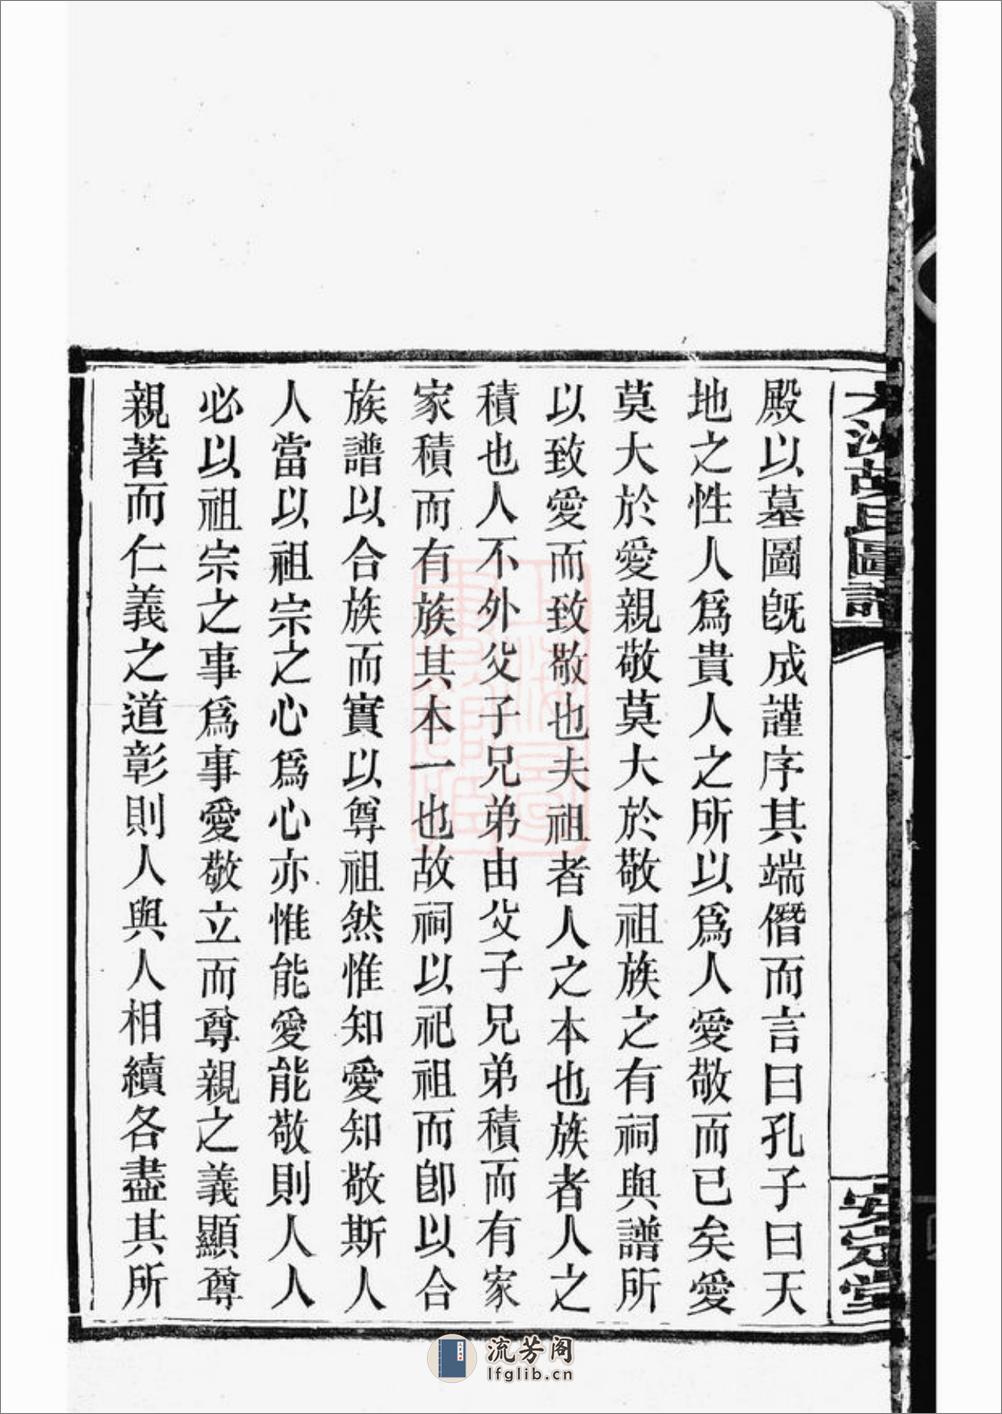 大沙胡氏圖譜
安定堂
殿以墓圖旣成謹序其端僭而言曰孔子曰天
地之性人爲貴人之所以爲人愛敬而已矣愛
莫大於愛親敬莫大於敬祖族之有祠與譜所
以致愛而致敬也夫祖者人之本也族者人之
積也人不外父子兄弟由父子兄弟積而有家
家積而有族其本一也故祠以祀祖而卽以合
族譜以合族而實以尊祖然惟知愛知敬斯人
人當以祖宗之心爲心亦惟能愛能敬則人人
必以祖宗之事爲事愛敬立而尊親之義顯尊
親著而仁義之道彰則人與人相續各盡其所
流芳阁
lfglib.cn